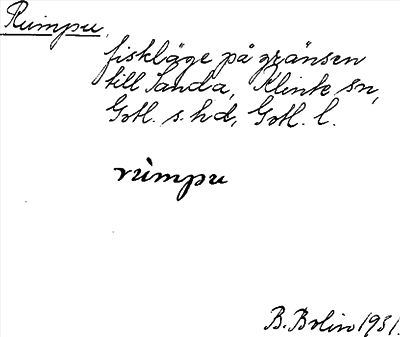 Rumpu,
fiskläge på gränsen
till Sanda, Klinte sn,
Gotl. s. hd, Gotl. l.
rùmpu
B. Bolin 1931.